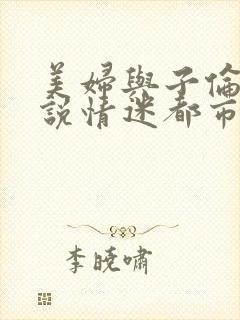 美婦與子倫
說情迷都市
李曉嘯